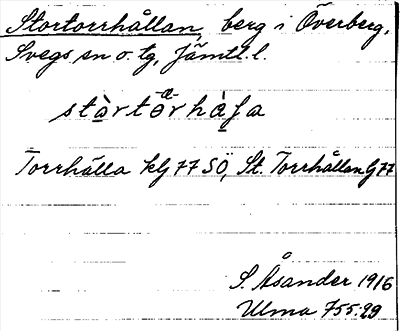 Stortorrhållan, berg i Överberg,
Svegs sn o. tg, Jämtl. l.
Torrhålla klj 77 SÖ, St. Torrhållan Gj 77
S. Åsander 1916
Ulma 755:29